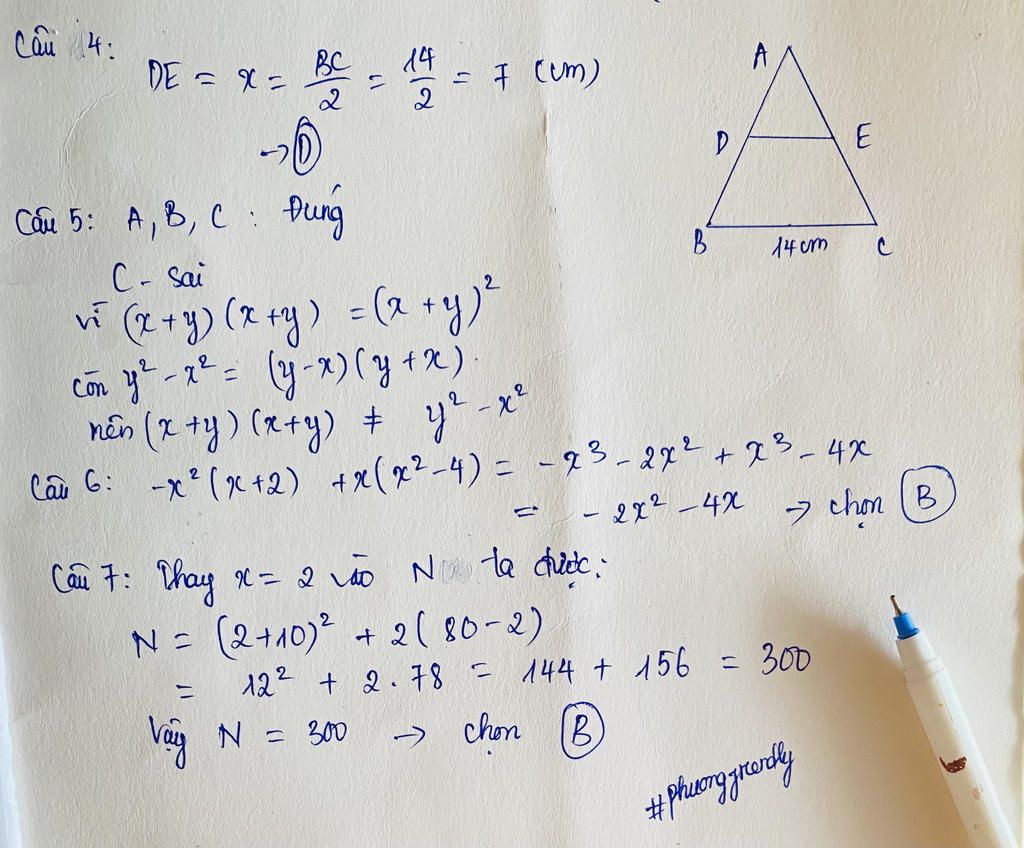 Câu 4:
DE = x = BC/2 = 14/2 = 7 (cm)
→ D
A
D E
B 14cm C
Câu 5: A, B, C : Đúng
C - sai
vì (x+y)(x+y) = (x+y)²
còn y² - x² = (y-x)(y+x).
nên (x+y)(x+y) ≠ y² - x²
Câu 6: -x²(x+2) + x(x²-4) = -x³ - 2x² + x³ - 4x
= - 2x² - 4x → chọn B
Câu 7: Thay x = 2 vào N ta được:
N = (2+10)² + 2(80-2)
= 12² + 2.78 = 144 + 156 = 300
Vậy N = 300 → chọn B